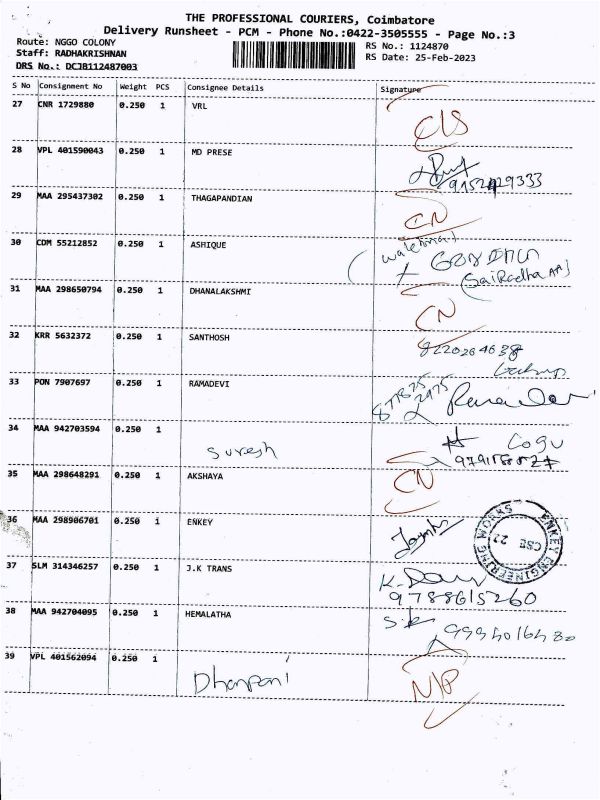 THE PROFESSIONAL COURIERS, Coimbatore
Delivery Runsheet - PCM - Phone No.:0422-3505555 - Page No.:3
Route: NGGO COLONY
Staff: RADHAKRISHNAN
DRS No.: DCJB112487003
RS No.: 1124870
RS Date: 25-Feb-2023
S No Consignment No Weight PCS Consignee Details Signature
27 CNR 1729880 0.250 1 VRL
C/S
28 VPL 401590043 0.250 1 MD PRESE
29 MAA 295437302 0.250 1 THAGAPANDIAN
CN
30 CDM 55212852 0.250 1 ASHIQUE
31 MAA 298650794 0.250 1 DHANALAKSHMI
CN
32 KRR 5632372 0.250 1 SANTHOSH
8220264638
33 PON 7907697 0.250 1 RAMADEVI
34 MAA 942703594 0.250 1
Suresh
35 MAA 298648291 0.250 1 AKSHAYA
CN
36 MAA 298906701 0.250 1 ENKEY
ENKEY ENGINEERING WORKS
37 SLM 314346257 0.250 1 J.K TRANS
9788615260
38 MAA 942704095 0.250 1 HEMALATHA
9994016480
39 VPL 401562094 0.250 1
Dhanpani
N/P